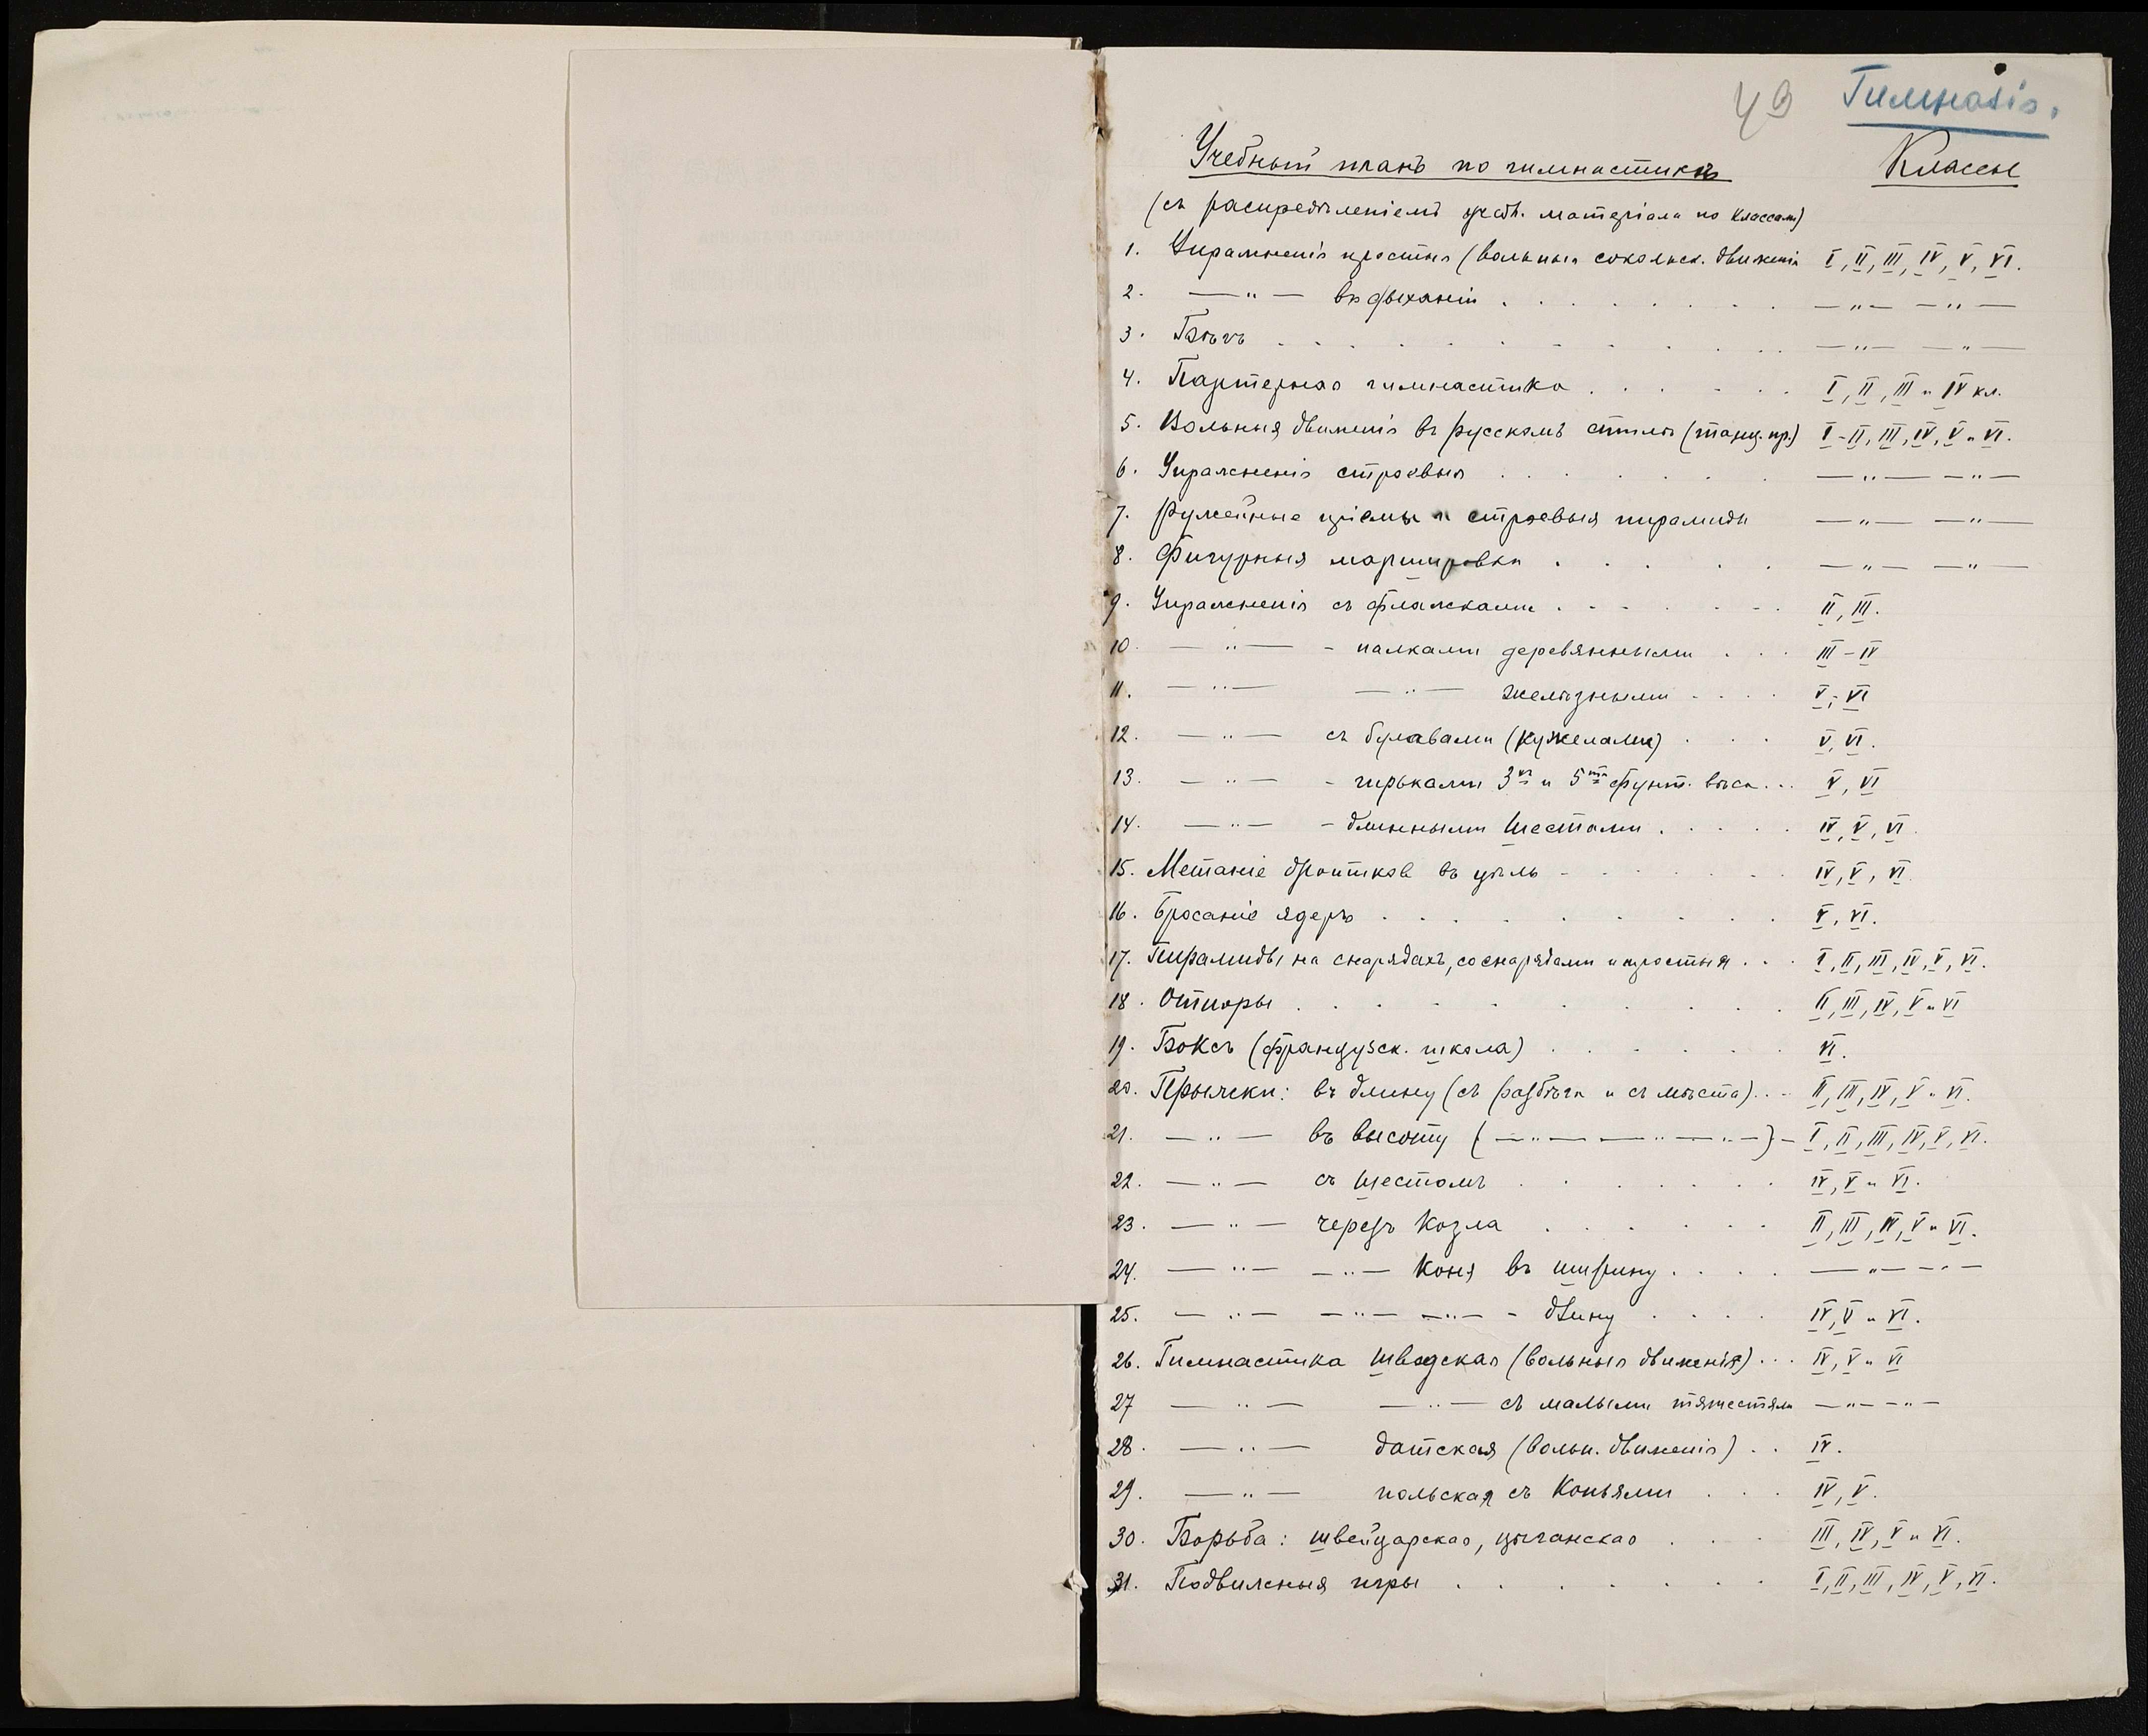 49 Гимназія.
Учебный планъ по гимнастикѣ Классы
(съ распредѣленіемъ учебн. матеріала по классамъ)
1. Упражненія простыя (вольныя сокольск. движенія I, II, III, IV, V, VI.
2. —„— въ дыханіи . . . . . . —„— —„—
3. Бѣгъ . . . . . . . . . . —„— —„—
4. Партерная гимнастика . . . . . I, II, III и IV кл.
5. Вольныя движенія въ русскомъ стилѣ (танц. пр.) I-II, III, IV, V и VI.
6. Упражненія строевыя . . . . . —„— —„—
7. Ружейные пріемы и строевыя пирамиды —„— —„—
8. Фигурныя маршировки . . . . . —„— —„—
9. Упражненія съ флажками . . . . . II, III.
10. —„— - палками деревянными . . . III - IV
11. —„— —„— желѣзными . . . . V, VI
12. —„— съ булавами (кужелами) . . . V, VI.
13. —„— - гирьками 3хъ и 5ти фунт. вѣса . . . V, VI
14. —„— - длинными шестами . . . . . IV, V, VI.
15. Метаніе дротиков въ цѣль - . . . . . . IV, V, VI.
16. Бросаніе ядеръ . . . . . . . . V, VI.
17. Пирамиды на снарядахъ, со снарядами и простыя . . . I, II, III, IV, V, VI.
18. Отпоры . . . . . . . . II, III, IV, V и VI
19. Боксъ (французск. школа) . . . . . . VI.
20. Прыжки: въ длину (съ разбѣга и съ мѣста) . . - II, III, IV, V и VI.
21. —„— въ высоту (—„— —„— —„—) - I, II, III, IV, V, VI.
22. —„— съ шестомъ . . . . . . IV, V и VI.
23. —„— черезъ козла . . . . . . II, III, IV, V и VI.
24. —„— —„— коня въ ширину . . . . —„— —„—
25. —„— —„— —„— - длину . . . . IV, V и VI.
26. Гимнастика шведская (вольныя движенія) . . . IV, V и VI
27 —„— —„— съ малыми тяжестями —„— —„—
28. —„— датская (вольн. движенія) . . IV.
29. —„— польская съ копьями . . . IV, V.
30. Борьба: швейцарская, цыганская . . . III, IV, V и VI.
31. Подвижныя игры . . . . . . . I, II, III, IV, V, VI.